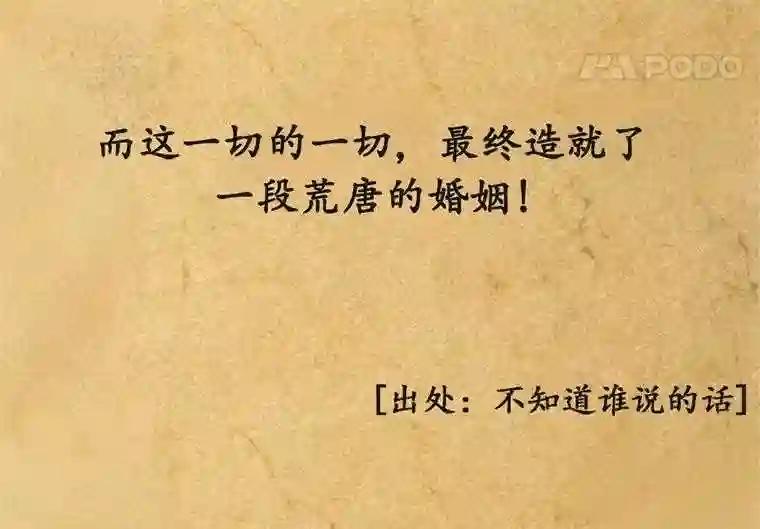 HA·PODO
而这一切的一切，最终造就了
一段荒唐的婚姻！
[出处：不知道谁说的话]